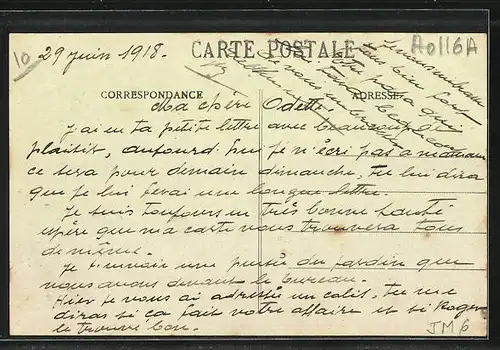 10
29 Juin 1918.
CARTE POSTALE
A0116A
CORRESPONDANCE
ADRESSE
Ma chère Odette,
J'ai eu ta petite lettre avec beaucoup de
plaisir, aujourd'hui je n'écris pas a maman
ce sera pour demain dimanche, tu lui diras
que je lui ferai une longue lettre.
Je suis toujours en très bonne santé
espère que ma carte vous trouvera tous
de même.
Je t'envoie une partie du jardin que
nous avons devant le bureau.
Hier je vous ai adressé un colis, tu me
diras si ca fait votre affaire et si Roger
le trouve bon.
votre papa qui
Je vous
tous bien fort
JM6